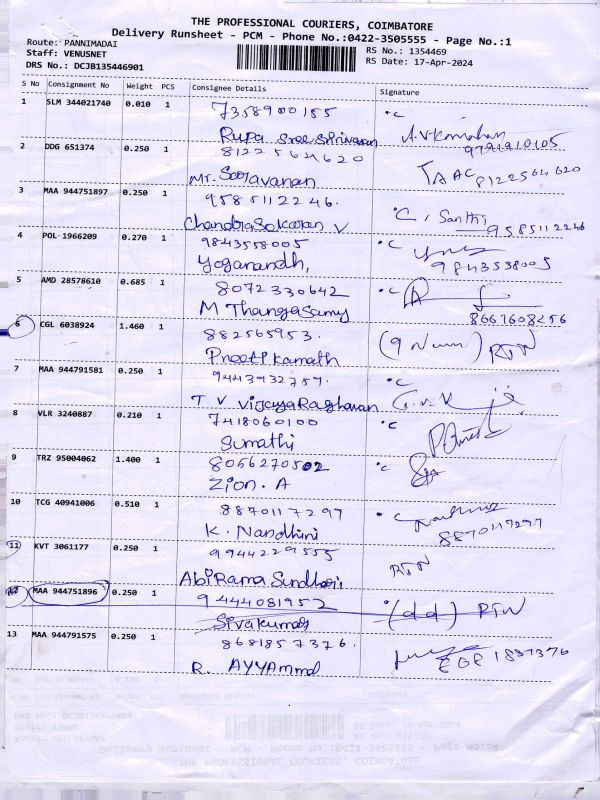 THE PROFESSIONAL COURIERS, COIMBATORE
Delivery Runsheet - PCM - Phone No.:0422-3505555 - Page No.:1
Route: PANNIMADAI
RS No.: 1354469
Staff: VENUSNET
RS Date: 17-Apr-2024
DRS No.: DCJB135446901
S No Consignment No Weight PCS Consignee Details Signature
1 SLM 344021740 0.010 1 7358900185 °C
Rupa Sree Srinivasan
2 DDG 651374 0.250 1 8122564620 TAAC 8122564620
Mr. Saravanan
3 MAA 944751897 0.250 1 9585112246. °C, Santhi 9585112246
Chandrasekaran V
4 POL 1966209 0.270 1 9843558005 °C 9843538005
Yoganandh,
5 AMD 28578610 0.685 1 8072330642 8667608256
M Thangasamy
6 CGL 6038924 1.460 1 882565953. (9 Num) RTN
Preeti Kamath
7 MAA 944791581 0.250 1 9443932757. °C
T V Vijaya Raghavan
8 VLR 3240887 0.210 1 7418060100 °C
Sumathi
9 TRZ 95004062 1.400 1 8056270502 °C
Zion. A
10 TCG 40941006 0.510 1 8870117297 °C 8870117297
K. Nandhini
11 KVT 3061177 0.250 1 9944229555 RTN
Abirama Sundhari
12 MAA 944751896 0.250 1 9444081952 (dd) RTN
Sivakumar
13 MAA 944791575 0.250 1 8681857376.
R. AYYAmmal